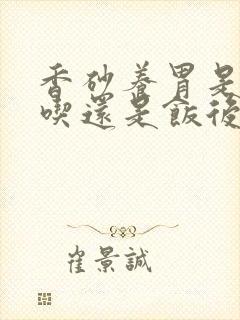 香砂養胃是
喫還是飯後
崔景誠